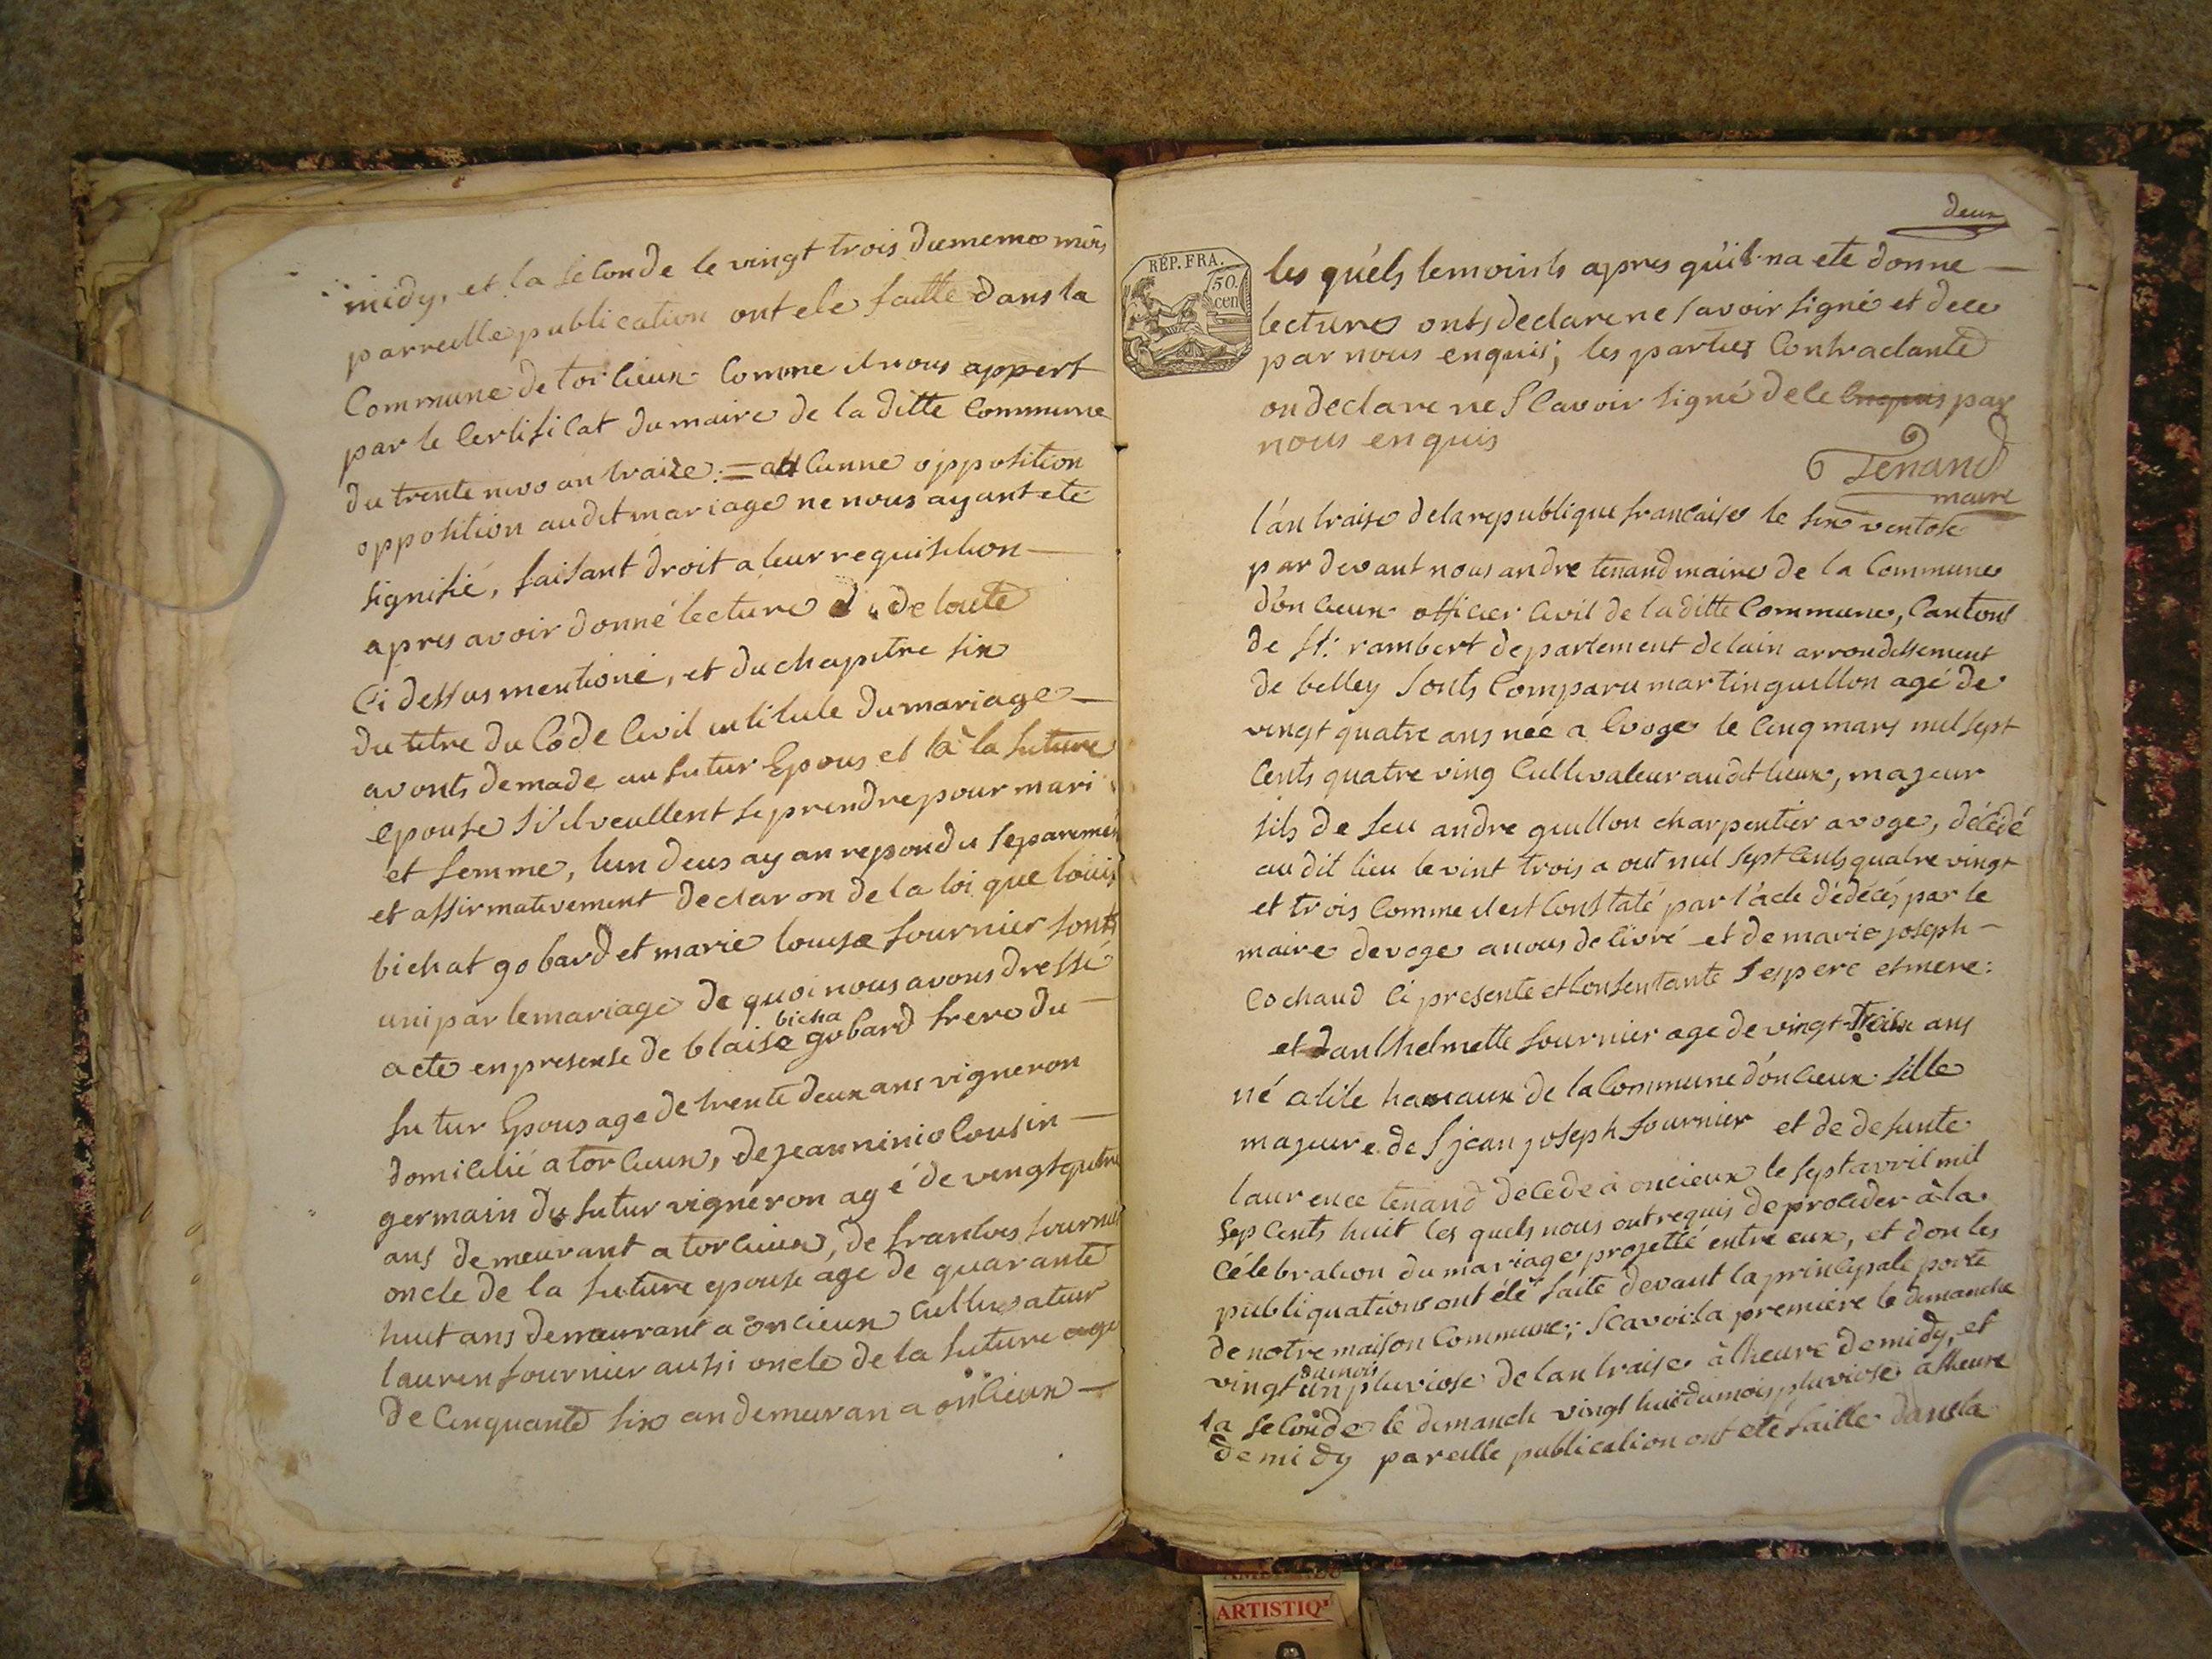 midy, et la seconde le vingt trois du meme mois
parreille publication ont ete faitte dans la
Commune de torcieux Comme il nous appert
par le Certificat du maire de la ditte Commune
du trente nivo an traize. = aucunne opposition
opposition audit mariage ne nous ayant eté
signifié, faisant droit a leur requisition
apres avoir donné lecture de toute
Ci dessus mentioné, et du chapitre six
du titre du Code Civil intitule du mariage
avonts demade au futur Epous et à la future
epouse s'il veullent se prendre pour mari
et femme, lun deus ay an repondu separemen
et affirmativement declar on de la loi que louis
bichat gobard et marie louise fournier sonts
uni par le mariage de quoi nous avons dressé
bicha
acte en presense de blaise gobard frere du
futur Epous age de trente deux ans vigneron
domicilié a torcieux, de jean ninio Cousin
germain du futur vigneron agé de vingt quatre
ans demeurant a torcieux, de francois fournie
oncle de la future epouse age de quarante
huit ans demeurant a oncieux cultivateur
lauren fournier aussi oncle de la future age
de Cinquante six an demeuran a oncieux
deux
RÉP. FRA.
50.
cen
les quéls temoints apres qu'il na ete donne
lecture onts declare ne savoir signé et de ce
par nous enquis; les parties Contractante
on declare ne scavoir signé de ce enquis par
nous enquis
Tenand
maire
l'án traise de la republique francaise le six ventose
par devant nous andre tenand maire de la Commune
d'on cieux officier Civil de la ditte Commune, Cantons
de st. rambert departement de lain arrondissement
de belley sonts Comparu martin guillon agé de
vingt quatre ans née a Evoges le Cinq mars mil sept
Cents quatre ving Cultivateur audit lieux, majeur
fils de feu andre guillon charpentier a voge, décédé
au dit lieu le vint trois a out mil sept Cents quatre vingt
et trois Comme il est Constaté par l'acte dédécés par le
maire de voge a nous delivré et de marie joseph
Cochaud Ci presente et Consentante ses pere et mere:
et danthelmette fournier age de vingt ans
né a hamaux de la Commune d'on cieux fille
majeure de S jean joseph fournier et de defunte
laurence tenand décédé a oncieux le sept avril mil
sep Cents huit les quels nous ont requis de proceder à la
célebration du mariage projetté entre eux, et don les
publiquations ont été faite devant la principale porte
de notre maison Commune; scavoir la premiere le dimanche
du mois
vingt un pluviose de lan traise à lheure de midy, et
la seconde le dimanch vingt huit du mois pluviose a lheure
de midy pareille publication ont eté faitte dans la
ARTISTIQ'